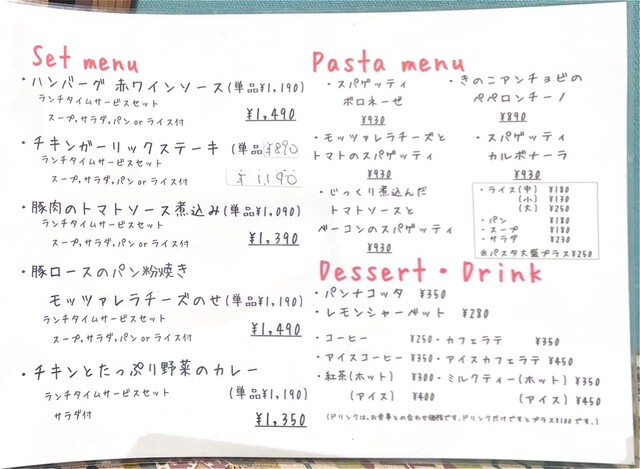 Set menu
・ハンバーグ 赤ワインソース(単品¥1,190)
ランチタイムサービスセット
スープ,サラダ,パン or ライス付 ¥1,490
・チキンガーリックステーキ (単品¥890)
ランチタイムサービスセット
スープ,サラダ,パン or ライス付 ¥1,190
・豚肉のトマトソース煮込み(単品¥1,090)
ランチタイムサービスセット
スープ,サラダ,パン or ライス付 ¥1,390
・豚ロースのパン粉焼き
モッツァレラチーズのせ(単品¥1,190)
ランチタイムサービスセット
スープ,サラダ,パン or ライス付 ¥1,490
・チキンとたっぷり野菜のカレー
ランチタイムサービスセット (単品¥1,190)
サラダ付 ¥1,350
Pasta menu
・スパゲッティ
ボロネーゼ
¥930
・きのこアンチョビの
ペペロンチーノ
¥890
・モッツァレラチーズと
トマトのスパゲッティ
¥930
・スパゲッティ
カルボナーラ
¥930
・じっくり煮込んだ
トマトソースと
ベーコンのスパゲッティ
¥930
・ライス(中) ¥180
(小) ¥130
(大) ¥250
・パン ¥180
・スープ ¥180
・サラダ ¥230
※パスタ大盛プラス¥250
Dessert・Drink
・パンナコッタ ¥350
・レモンシャーベット ¥280
・コーヒー ¥250・カフェラテ ¥350
・アイスコーヒー ¥350・アイスカフェラテ ¥450
・紅茶(ホット) ¥300・ミルクティー(ホット) ¥350
(アイス) ¥400 (アイス) ¥450
(ドリンクは、お食事との合わせ価格です。ドリンクだけですとプラス¥100です。)